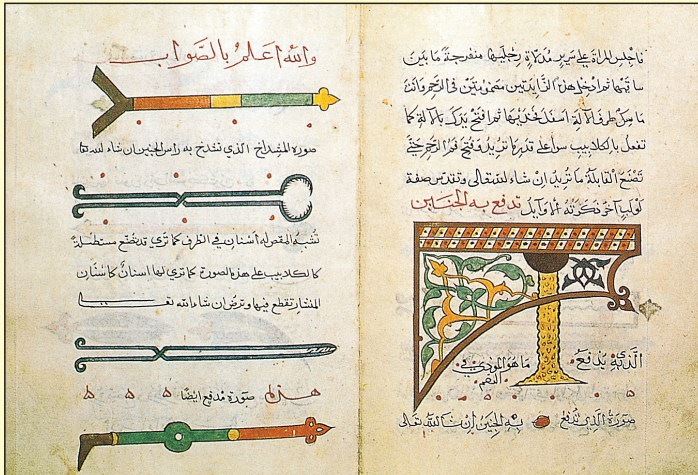 فاجلس المراة على سرير مدلاة رجليها منفرجة ما بين
ساقيها ثم ادخل هذا الزايدتين مضمومتين في الرحم وانت
ماسك طرف الالة اسفل فخذيها ثم افتح يدك بالالة كما
تفعل بالكلاليب سوا على قدر ما تريد فتح فم الرحم حتى
تصنع القابلة ما تريد ان شاء الله تعالى
لولب اخر ذكرته الاوايل تدفع به الجنين
الذي يدفع ما هو المودي
صورة الذي تدفع به الجنين ان شا الله تعالى
والله اعلم بالصواب
صورة المشداخ الذي تشدخ به راس الجنين ان شاء لله
تشبه المقص له أسنان في الطرف كما ترى قد يصنع مستطيلة
كالكلاليب على هذه الصورة كما ترى لها اسنان كاسنان
المنشار تقطع فيها وترض ان شاء الله
هذه صورة مدفع ايضا